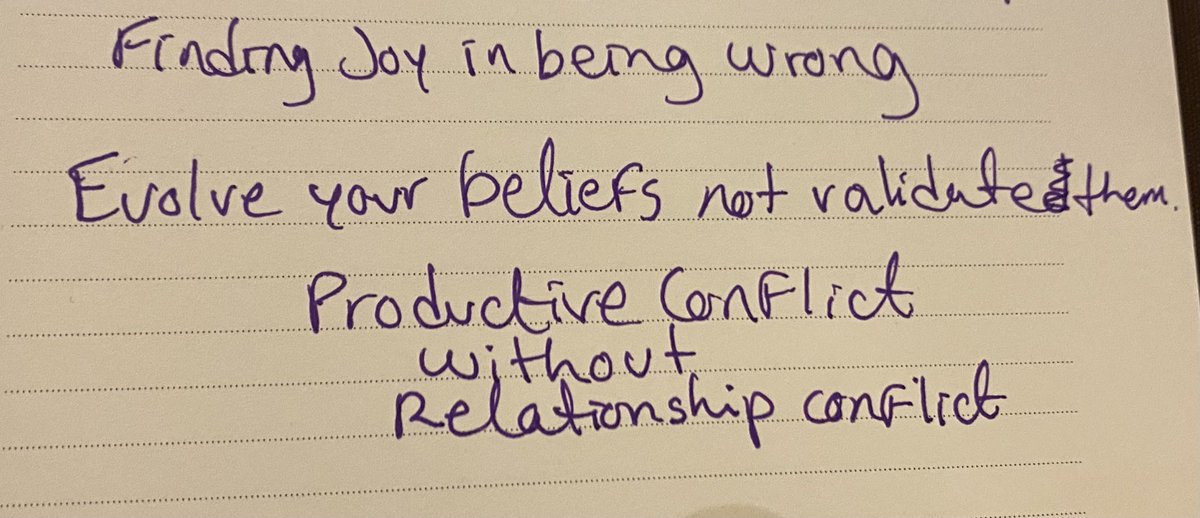 Finding Joy in being wrong
Evolve your beliefs not validate them.
Productive Conflict
without
Relationship conflict